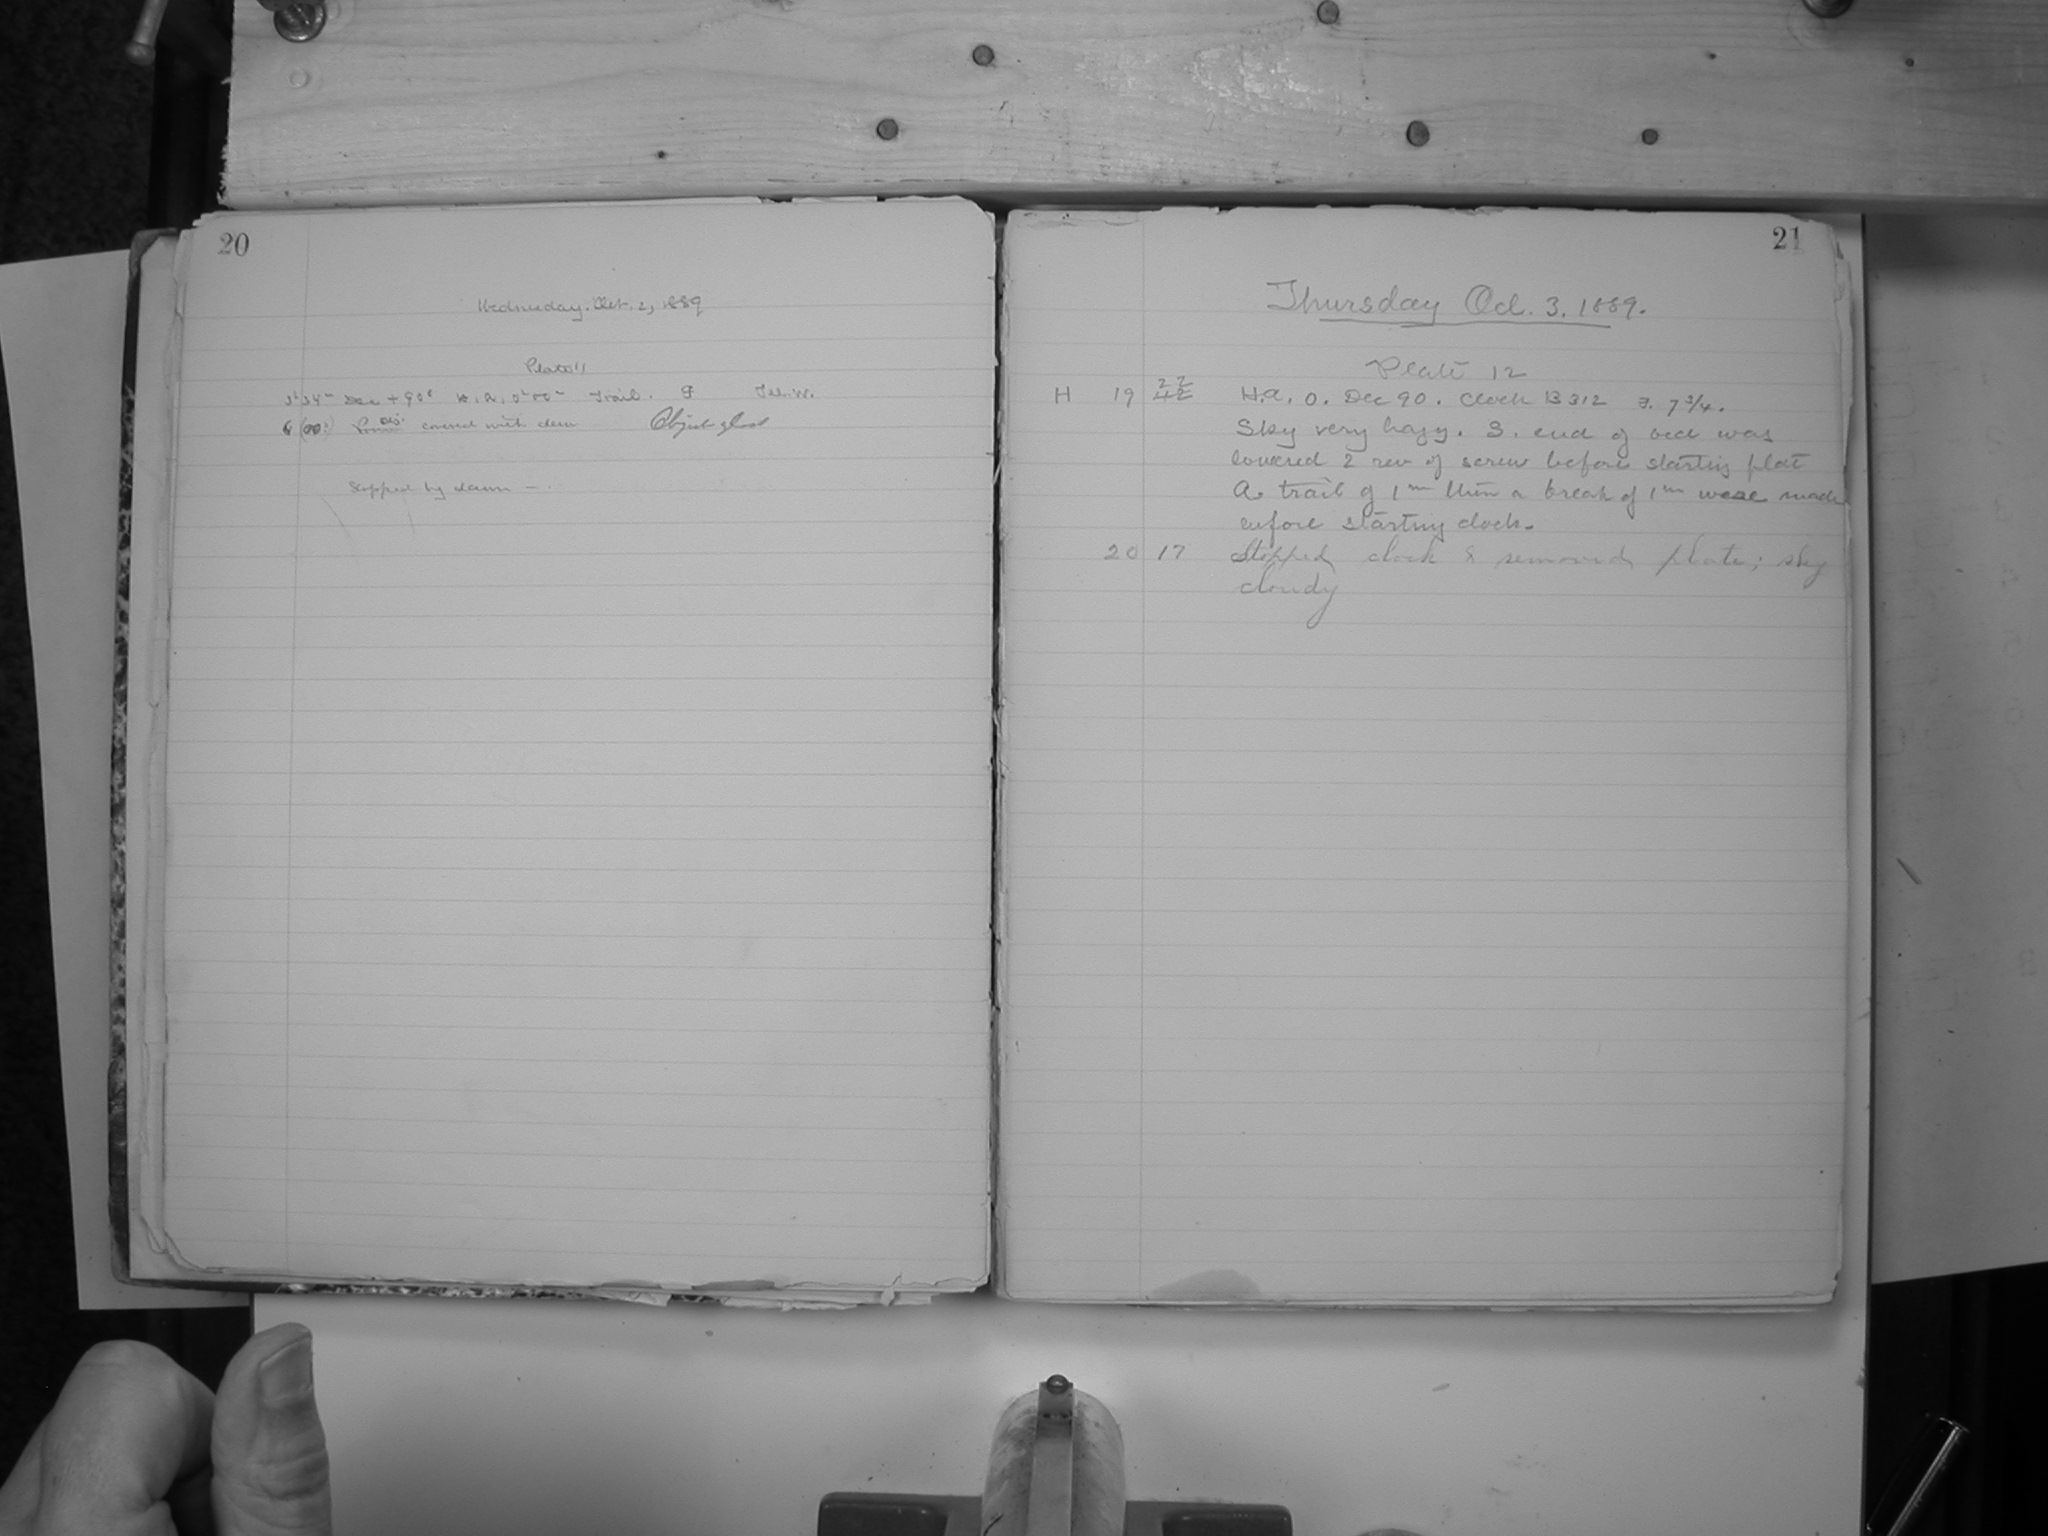 20
Wednesday. Oct. 2, 1889
Plate 11
Dec +90° H.A. 0h00m Trail. Tel. W.
covered with dew Object glass
Stopped by dawn —.
21
Thursday Oct. 3. 1889.
Plate 12
H 19 22 42 H.A. 0. Dec 90. Clock B 312 F. 7 3/4.
Sky very hazy. S. end of bed was
lowered 2 rev of screw before starting plate
A trail of 1m then a break of 1m were made
before starting clock.
20 17 Stopped clock & removed plate; sky
cloudy